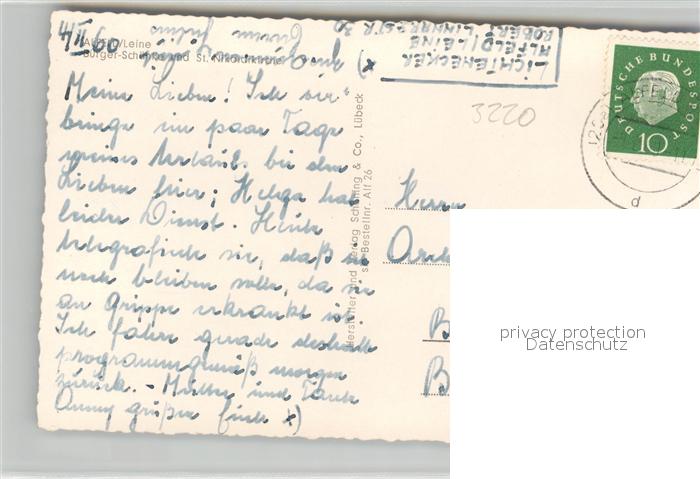 4/II 60
ALFELD/Leine
Bürger-Schänke und St. Nikolaikirche
LICHTENECKER
ALFELD/LEINE
ROBERT LINNARZSTR 30
Meine Lieben! Ich ver-
bringe ein paar Tage
meines Urlaubs bei den
Lieben hier; Helga hat
leider Dienst. Heute
telegrafierte sie, daß sie
noch bleiben solle, da sie
an Grippe erkrankt ist.
Ich fahre gerade deshalb
programmgemäß morgen
zurück. – Mutter und Tante
Anny grüßen
x)
Hersteller und Verlag Schöning & Co., Lübeck
Bestellnr. Alf 26
3220
DEUTSCHE BUNDESPOST
10
d
Herrn
B
B
privacy protection
Datenschutz